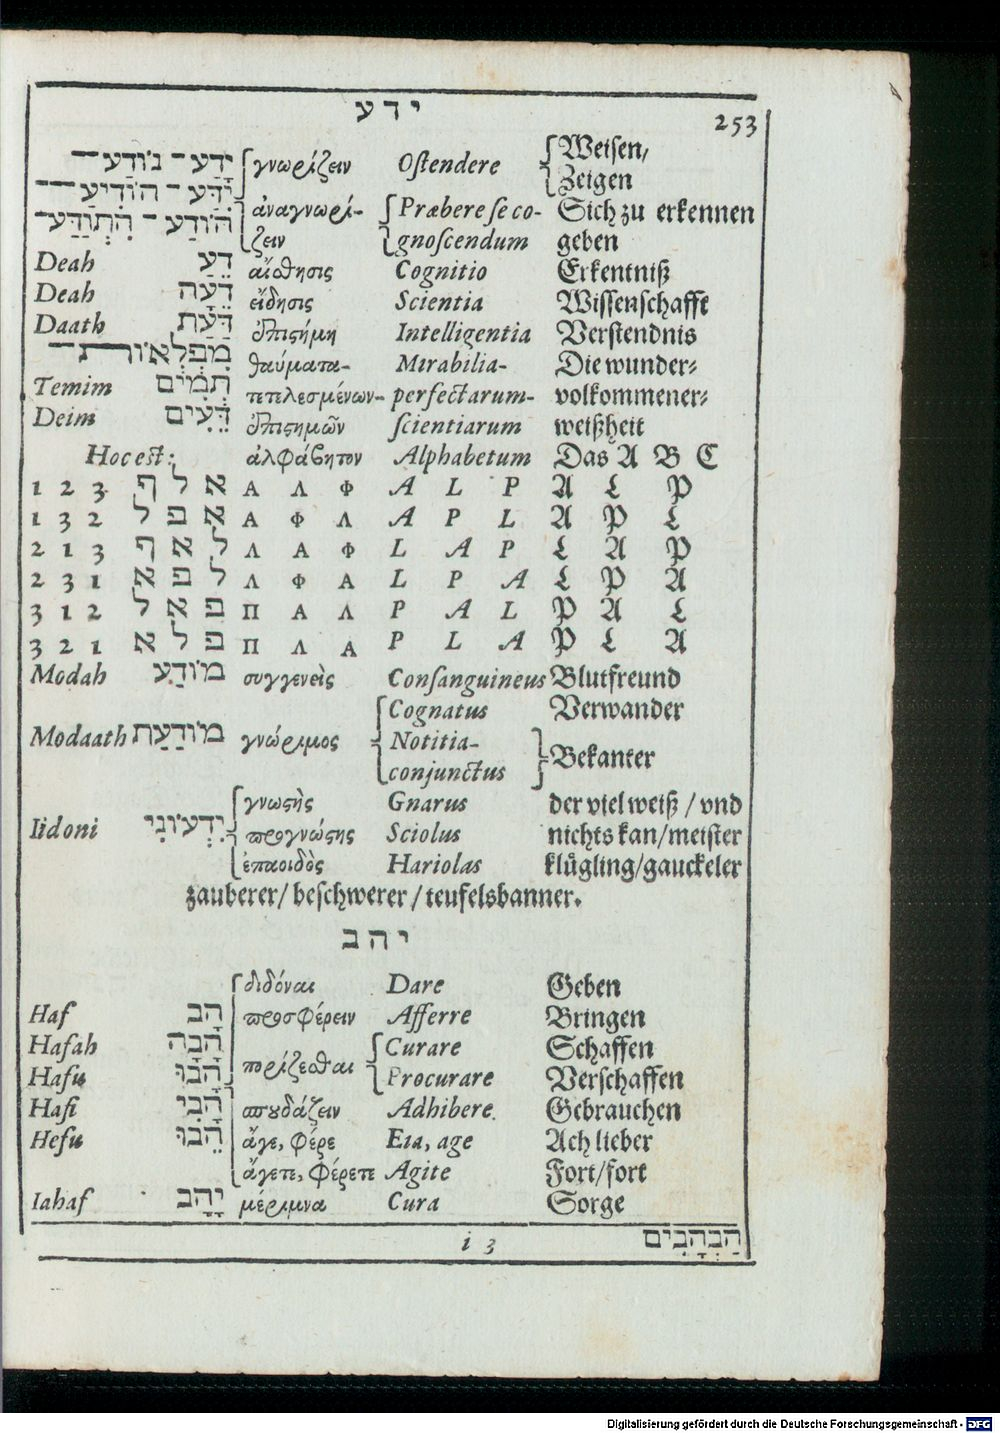 ידע
253
יָדַע־ נוֹדַע־ γνωρίζειν Ostendere Weisen/
Zeigen
יִדַּע־ הוֹדִיעַ־
הוֹדַע־ הִתְוַדַּע־ ἀναγνωρί- Præbere se co- Sich zu erkennen
ζειν gnoscendum geben
Deah דֵעַ αἴσθησις Cognitio Erkentniß
Deah דֵעָה εἴδησις Scientia Wissenschafft
Daath דַּעַת ἐπιςήμη Intelligentia Verstendnis
מִפְלְאוֹת־ θαύματα- Mirabilia- Die wunder-
Temim תְמִים τετελεσμένων- perfectarum- volkommener-
Deim דֵּעִים ἐπιςημῶν scientiarum weißheit
Hoc est: ἀλφάβητον Alphabetum Das A B C
1 2 3 אלף Α Λ Φ A L P A L P
1 3 2 אפל Α Φ Λ A P L A P L
2 1 3 לאף Λ Α Φ L A P L A P
2 3 1 לפא Λ Φ Α L P A L P A
3 1 2 פאל Π Α Λ P A L P A L
3 2 1 פלא Π Λ Α P L A P L A
Modah מוֹדַע συγγενεὶς Consanguineus Blutfreund
Cognatus Verwander
Modaath מוֹדַעַת γνώριμος Notitia- Bekanter
conjunctus
γνωςὴς Gnarus der viel weiß / vnd
Iidoni יִדְּעוֹנִי προγνώςης Sciolus nichts kan/meister
ἐπαοιδὸς Hariolas klügling/gauckeler
zauberer/ beschwerer / teufelsbanner.
יהב
διδόναι Dare Geben
Haf הַב προσφέρειν Afferre Bringen
Hafah הָבָה Curare Schaffen
πορίζεσθαι
Hafu הָבוּ Procurare Verschaffen
Hafi הָבִי σπουδάζειν Adhibere. Gebrauchen
Hefu הֵבוּ ἄγε, φέρε Eia, age Ach lieber
ἄγετε, φέρετε Agite Fort/fort
Iahaf יָהָב μέριμνα Cura Sorge
i 3 הַבְהָבִים
Digitalisierung gefördert durch die Deutsche Forschungsgemeinschaft - DFG